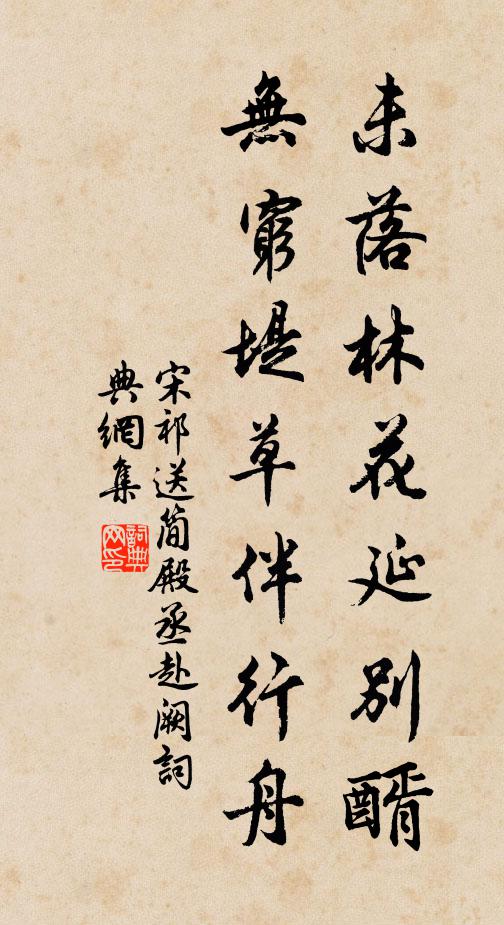 未落林花延別醑
無窮堤草伴行舟
宋祁送簡殿丞赴闕詞
典網集
詞典網印